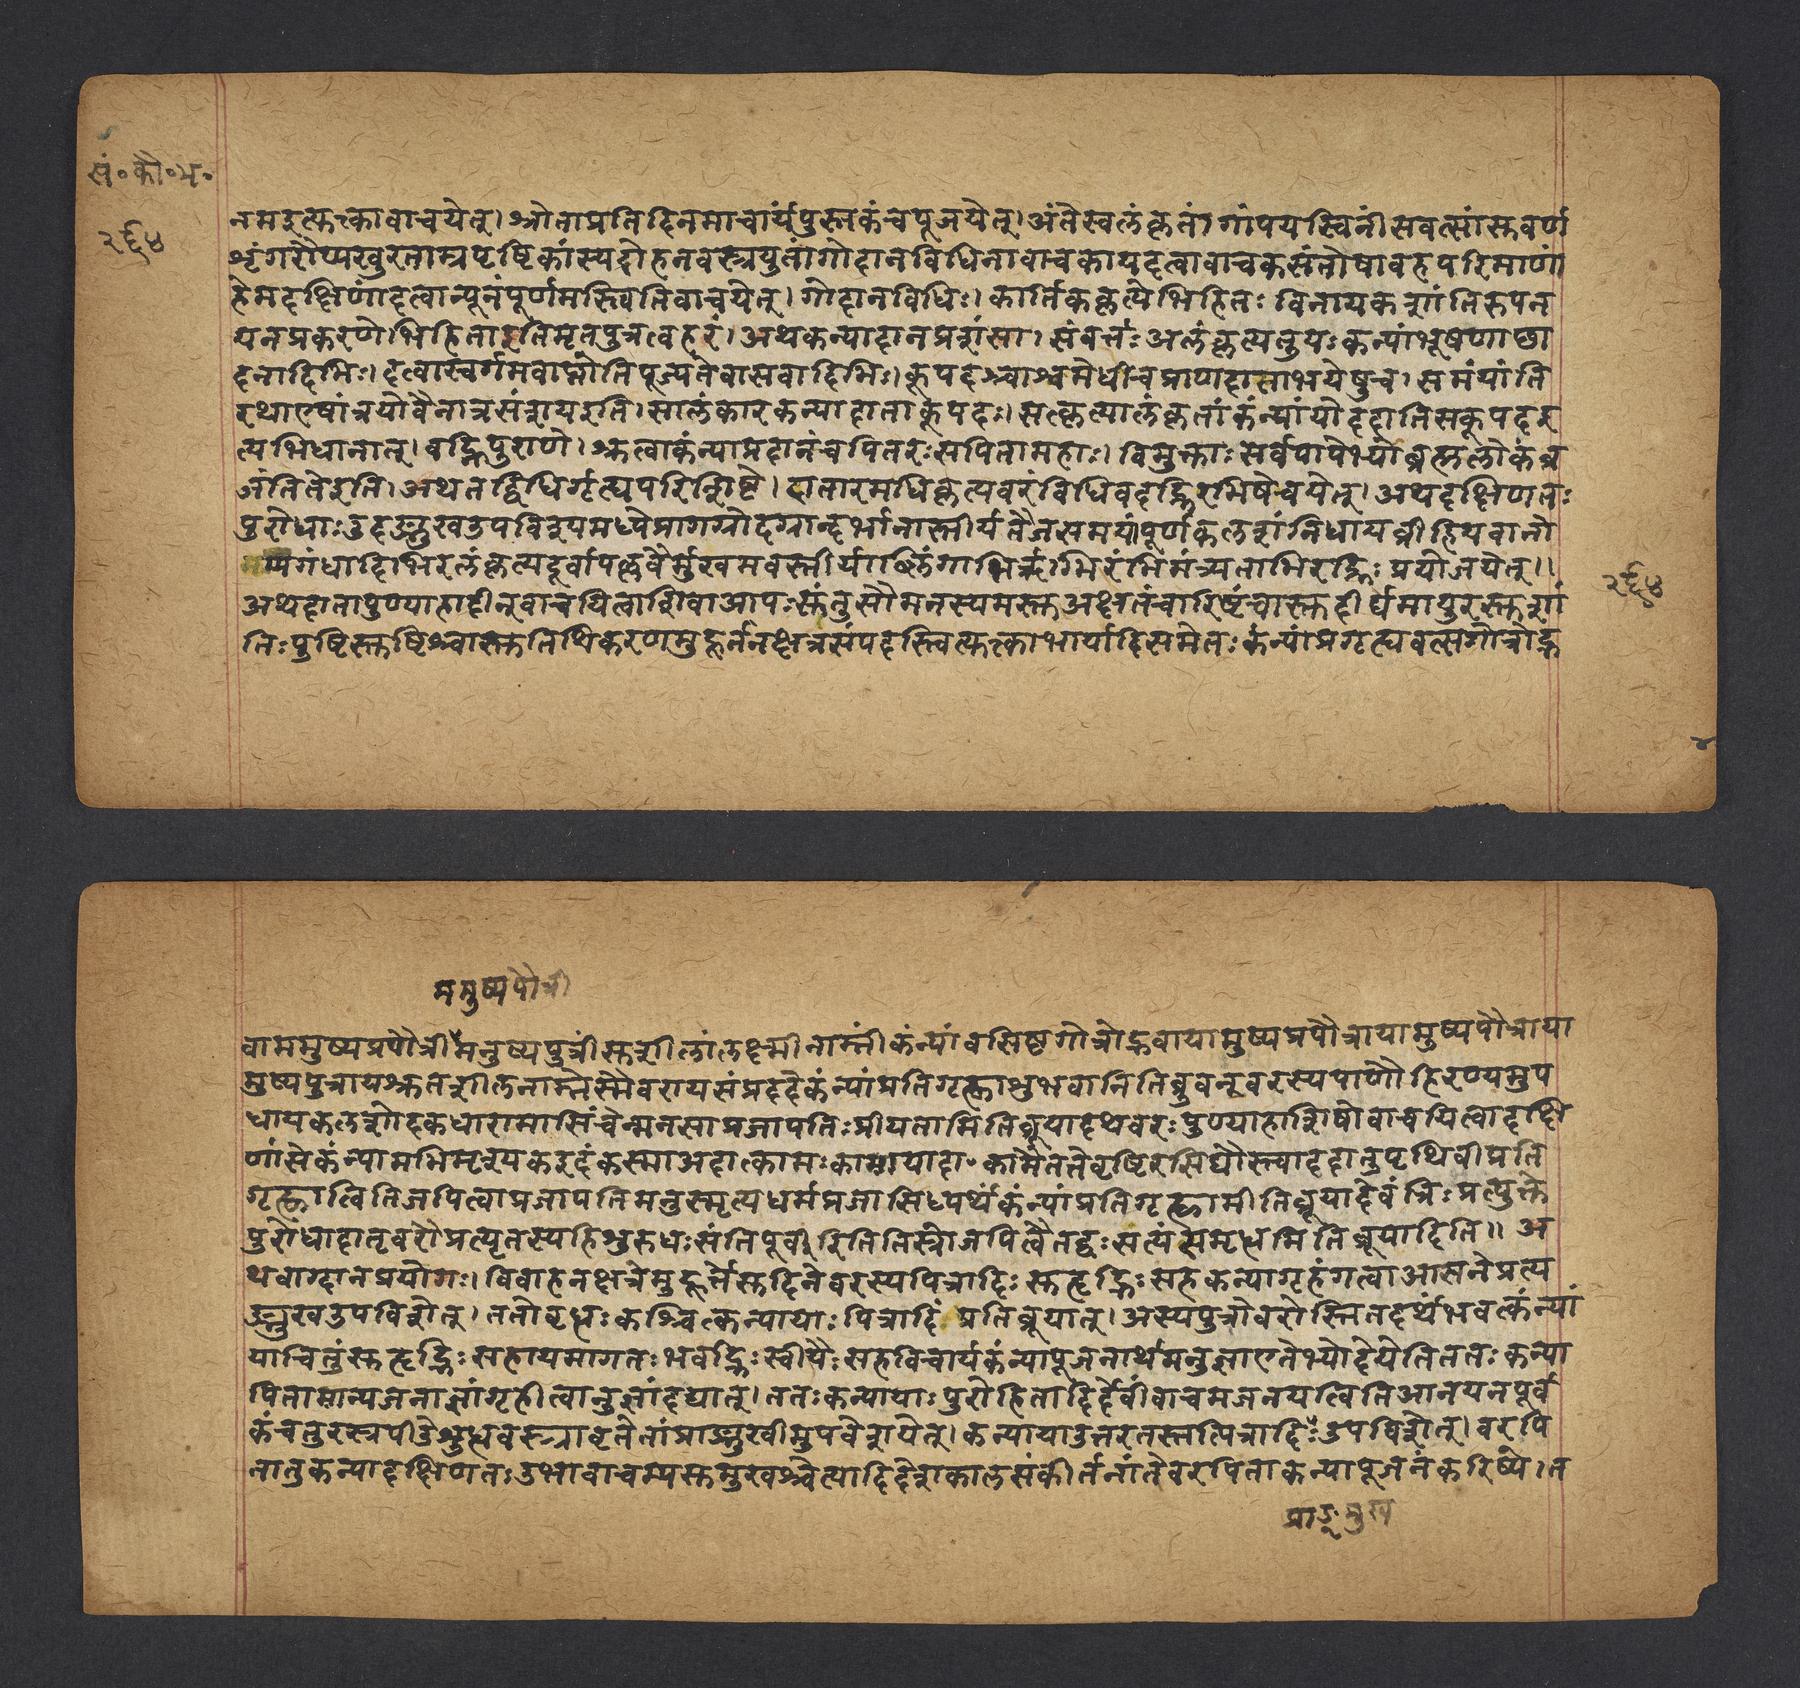 सं॰ कौ॰ भ॰
२६४
नमइत्युक्त्कावाचयेत्। श्रोताप्रतिदिनमाचार्यंपुस्तकंचपूजयेत्। अंतेस्वलंकृतां गांपयस्विनींसवत्सांसुवर्ण
शृंगरौप्यखुरताम्रपृष्टिकांस्यदोहनवस्त्रयुतांगोदानविधिनावाचकायदत्वावाचकसंतोषावहपरिमाणां
हेमदक्षिणांदत्वान्यूनंपूर्णमस्त्वितिवाचयेत्। गोदानविधिः। कार्तिककृत्येभिहितः विनायकशांतिरुपन
यनप्रकरणेभिहिताइतिमृतपुत्रत्वेहरं। अथकन्यादानप्रशंसा। संवर्त्तः अलंकृत्यतुयः कन्यांभूषणाछा
दनादिभिः। दत्वास्वर्गमवाप्नोतिपूज्यतेवासवादिभिः। कूपदश्चाश्वमेधीचप्राणदाताभयेषुच। समंयांति
रथाएषांत्रयोवैनात्रसंशयइति। सालंकारकन्यादाताकूपदः। सत्कृत्यालंकृतांकन्यांयोददातिसकूपदइ
त्यभिधानात्। वह्निपुराणे। श्रुत्वाकंन्याप्रदानंचपितरःसपितामहाः। विमुक्ताःसर्वपापेभ्योब्रह्मलोकंव्र
जंतितेइति। अथतद्विधिर्गृह्यपरिशिष्टे। दातारमधिकृत्यवरंविधिवदद्भिरभिषेचयेत्। अथदक्षिणतः
पुरोधाःउदङ्मुखउपविश्यमध्येप्रागग्रोदग्रान्दर्भानास्तीर्यतैजसमयींपूर्णकलशंनिधायव्रीहियवानो
प्यगंधादिभिरलंकृत्यदूर्वापल्लवैर्मुखमवस्तीर्याब्लिंगाभिर्ऋग्भिरभिमंत्र्यताभिरद्भिः प्रयोजयेत्॥
२६४
अथदातापुण्याहादीन्वाचयित्वाशिवाआपःसंतुसौमनस्यमस्तुअक्षतंचारिष्टंचास्तुदीर्घमायुरस्तुशां
तिःपुष्टिस्तुष्टिश्चास्तुतिथिकरणमुहूर्तनक्षत्रसंपदस्त्वित्युक्त्काभार्यादिसमेतः कंन्यांप्रगृह्यवत्सगोत्रोद्भ
ममुष्यपौत्री
वाममुष्यप्रपौत्रीमनुष्यपुत्रींसुशीलांलक्ष्मीनाम्नींकंन्यांवसिष्ठगोत्रोद्भवायामुष्यप्रपौत्रायामुष्यपौत्राया
मुष्यपुत्रायश्रुतशीलनाम्नेस्मैवरायसंप्रददेकंन्यांप्रतिगृह्णातुभवानितिब्रुवन्वरस्यपाणौहिरण्यमुप
धायकलशोदकधारामासिंचेन्मनसाप्रजापतिःप्रीयतामितिब्रूयादथवरःपुण्याहाशिषोवाचयित्वादक्षि
णांसेकंन्यामभिमृश्यकइदंकस्माअदात्कामःकामायादा॰ कामैतत्तेवृष्टिरसिद्यौस्त्वाददातुपृथिवीप्रति
गृह्णात्वितिजपित्वाप्रजापतिमनुस्मृत्यधर्मप्रजासिध्यर्थंकंन्यांप्रतिगृह्णामीतिब्रूयादेवंत्रिः प्रत्युक्ते
पुरोधादातृवरौप्रत्यृतस्यहिशुरुधःसंतिपूर्वीरितितिस्रोजपित्वैतद्वःसत्यंसमृध्धमितिब्रूयादिति॥ अ
थवाग्दानप्रयोगः। विवाहनक्षत्रेमुहूर्त्तेसुदिनेवरस्यपित्रादिः सुहृद्भिःसहकन्यागृहंगत्वाआसनेप्रत्य
ङ्मुखउपविशेत्। ततोवृध्धःकश्चित्कन्यायाःपित्रादिं प्रतिब्रूयात्। अस्यपुत्रोवरोस्मितदर्थंभवत्कंन्यां
याचितुंसुहृद्भिःसहायमागतःभवद्भिःस्वीयैःसहविचार्यकंन्यापूजनार्थमनुज्ञाएतेभ्योदेयेतिततःकन्या
पितामान्यजनाज्ञांगृहीत्वानुज्ञांदद्यात्। ततःकन्यायाःपुरोहितादिर्देवींवाचमजनयत्वितिआनयनपूर्व
कंचतुरस्त्रपीठेशुध्धवस्त्रावृतेतांप्राङ्मुखीमुपवेशयेत्। कन्यायाउत्तरतस्तत्पित्रादिःउपविशेत्। वरपि
तातुकन्यादक्षिणतःउभावाचम्यसुमुखश्चेत्यादिदेशकालसंकीर्तनांतेवरपिताकन्यापूजनंकरिष्ये। त
प्राङ्मुख